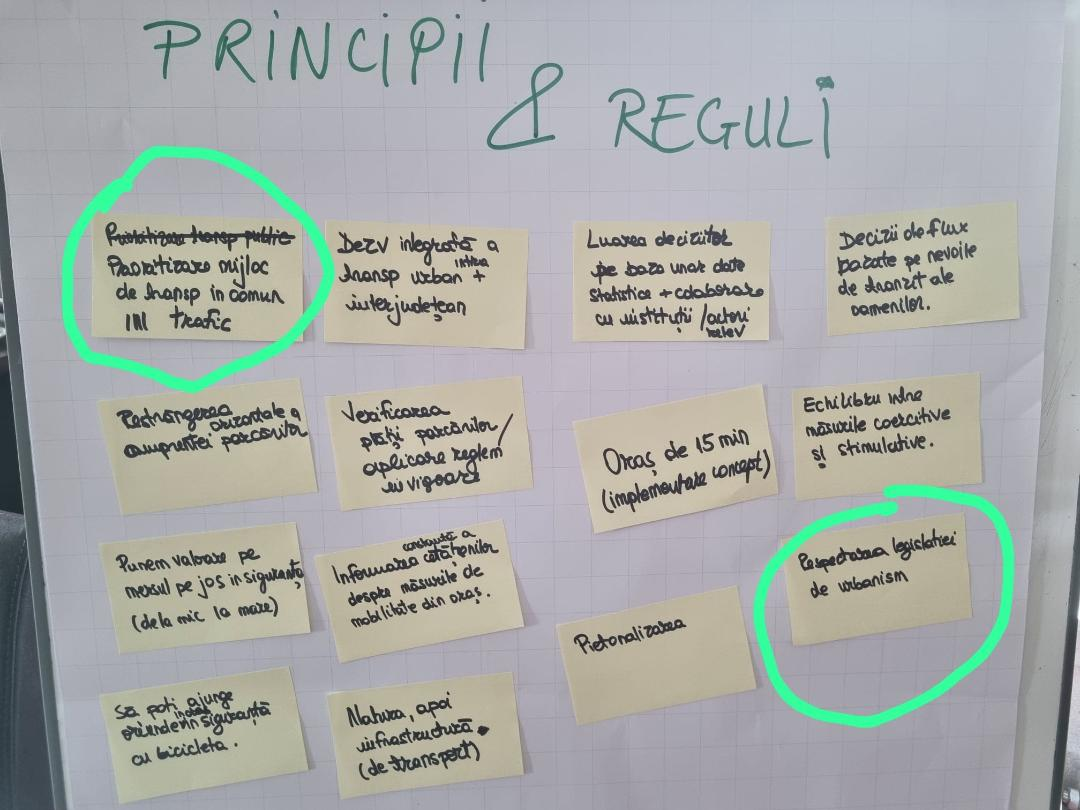 PRINCIPII
& REGULI
Prioritizare transp public
Prioritizare mijloc
de transp in comun
IN trafic
Dezv integrată a
transp urban intra +
interjudețean
Luarea deciziilor
pe baza unor date
statistice + colaborare
cu instituții / actori
relev
Decizii de flux
bazate pe nevoile
de tranzit ale
oamenilor.
Restrângerea
orizontale a
amprentei parcărilor
Verificarea
plății parcărilor /
aplicare reglem
în vigoare
Oraș de 15 min
(implementare concept)
Echilibru intre
măsurile coercitive
și stimulative.
Punem valoare pe
mersul pe jos in siguranță
(de la mic la mare)
constantă a
Informarea cetățenilor
despre măsurile de
mobilitate din oraș.
Pietonalizarea
Respectarea legislatiei
de urbanism
Să poți ajunge
oriunde in siguranță
cu bicicleta.
Natura, apoi
infrastructură.
(de transport)